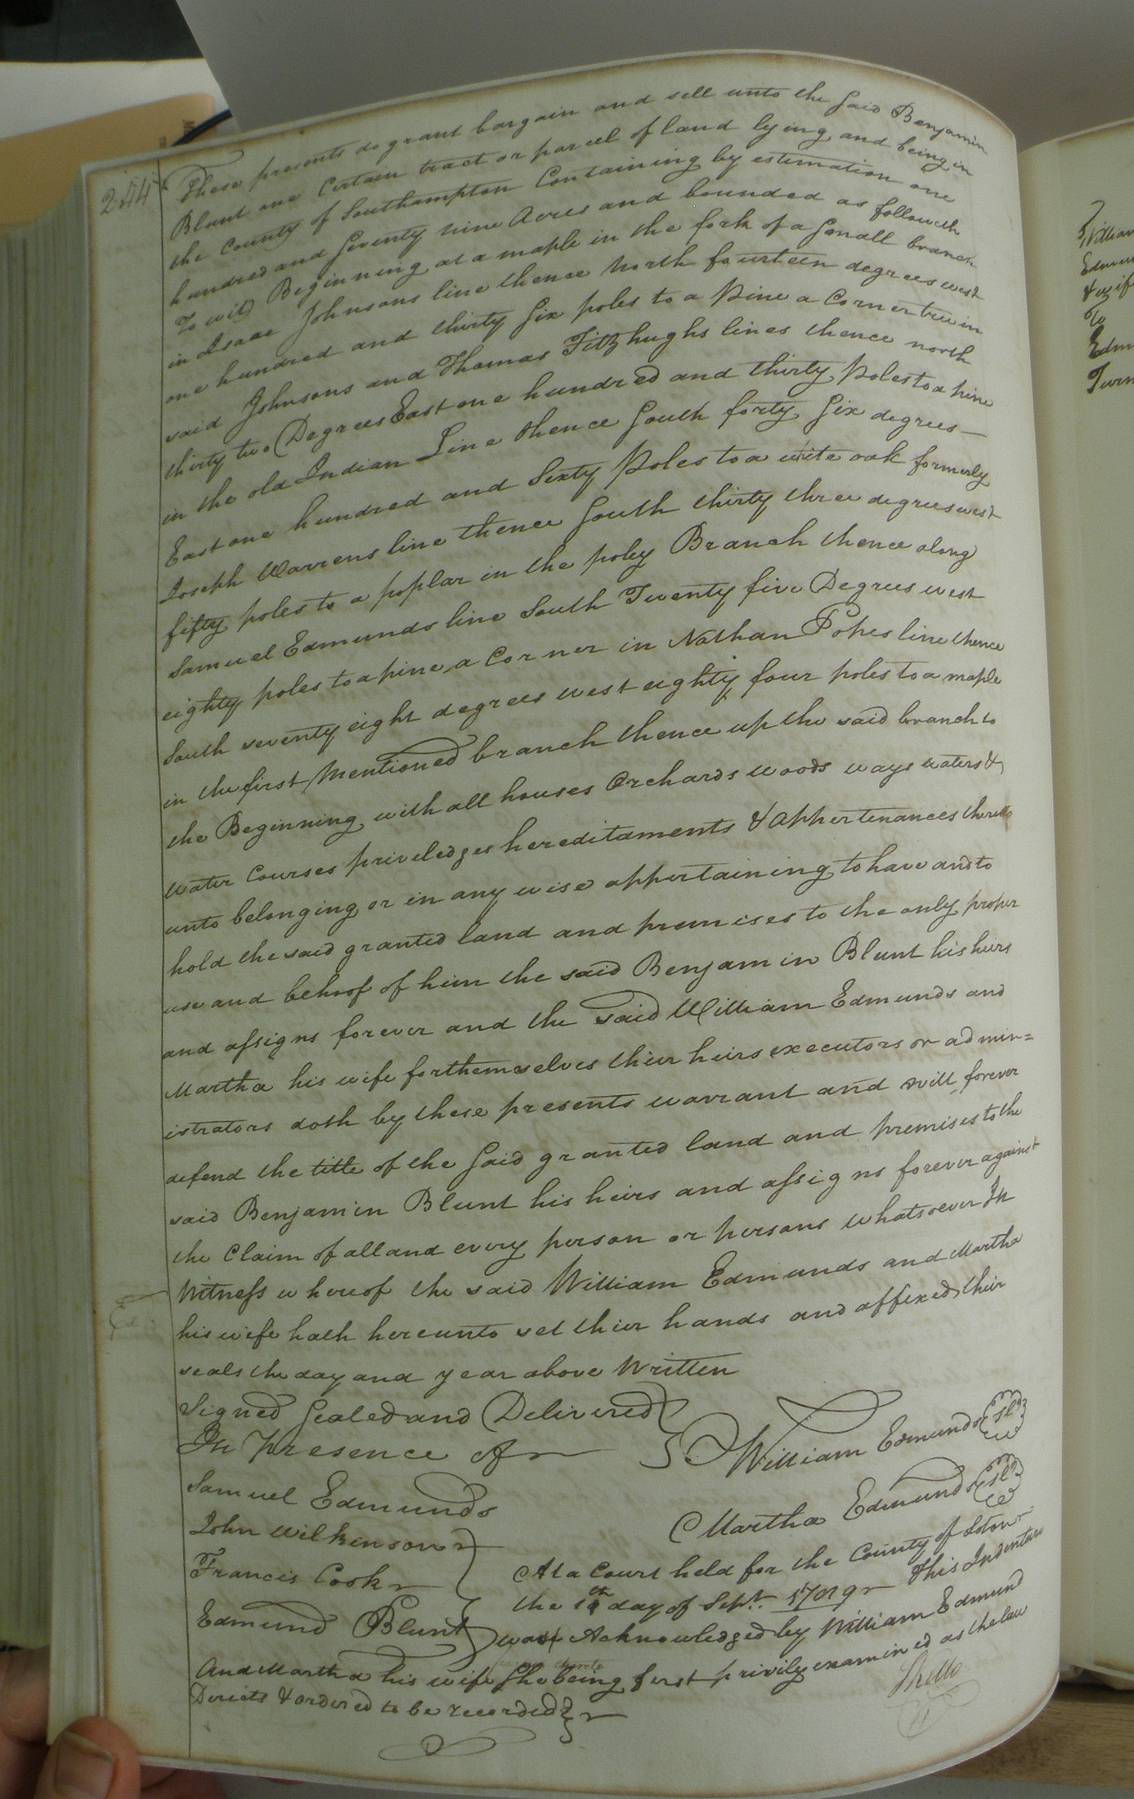 244
These presents do grant bargain and sell unto the said Benjamin
Blunt one Certain tract or parcel of land lying and being in
the County of Southampton Containing by estimation one
hundred and Seventy nine Acres and bounded as followeth
To wit Beginning at a maple in the fork of a Small branch
in Isaac Johnsons line thence North fourteen degrees west
one hundred and thirty Six poles to a Pine a Corner tree in
said Johnsons and Thomas Fitzhughs lines thence north
thirty two Degrees East one hundred and thirty Poles to a pine
in the old Indian Line thence South forty Six degrees
East one hundred and Sixty Poles to a wite oak formerly
Joseph Warrens line thence South thirty three degrees west
fifty poles to a poplar in the poley Branch thence along
Samuel Edmunds line South Twenty five Degrees west
eighty poles to a pine a Corner in Nathan Popes line thence
South seventy eight degrees west eighty four poles to a maple
in the first Mentioned branch thence up the said branch to
the Beginning with all houses Orchards woods ways waters &
water Courses priveledges hereditaments & appertenances there
unto belonging or in any wise appertaining to have and to
hold the said granted land and premises to the only proper
use and behoof of him the said Benjamin Blunt his heirs
and assigns forever and the said William Edmunds and
Martha his wife for themselves their heirs executors or admin=
istrators doth by these presents warrant and will forever
defend the title of the Said granted land and premises to the
said Benjamin Blunt his heirs and assigns forever against
the Claim of all and every person or persons whatsoever In
Witness whereof the said William Edmunds and Martha
his wife hath hereunto set their hands and affixed their
seals the day and year above Written
Signed Sealed and Delivered
In Presence of
William Edmunds
Samuel Edmunds
Martha Edmunds
John Wilkinson
Francis Cook
Edmund Blunt
At a Court held for the County of Soton
the day of Sept. This Indenture
was Acknowledged by William Edmund
And Martha his wife She being first privily examined as the law
Directs & ordered to be recorded
William
Edmu
& wife
To
Edm
Turn